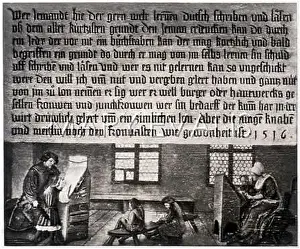 Wer jemandt hie der gern welt lernen dütsch schriben und läsen
uß dem aller kürtzisten grundt den jeman erdencken kan do durch
ein jeder der vor nit ein büchstaben kan der mag kürtzlich und bald
begriffen ein grundt do durch er mag von im selbs lernen sin schuld
uff schriben und läsen und wer es nit gelernen kan so ungeschickt
wer den will ich um nüt und vergeben glert haben und gantz nüt
von im zů lon nemen er sig wer er well burger oder hantwercks ge
sellen frouwen und junckfrouwen wer sin bedarff der kum har in der
wirt drüwlich glert um ein zimlichen lon. Aber die junge knabē
und meitlin noch den fronuasten wie gewonheit ist. 1516.